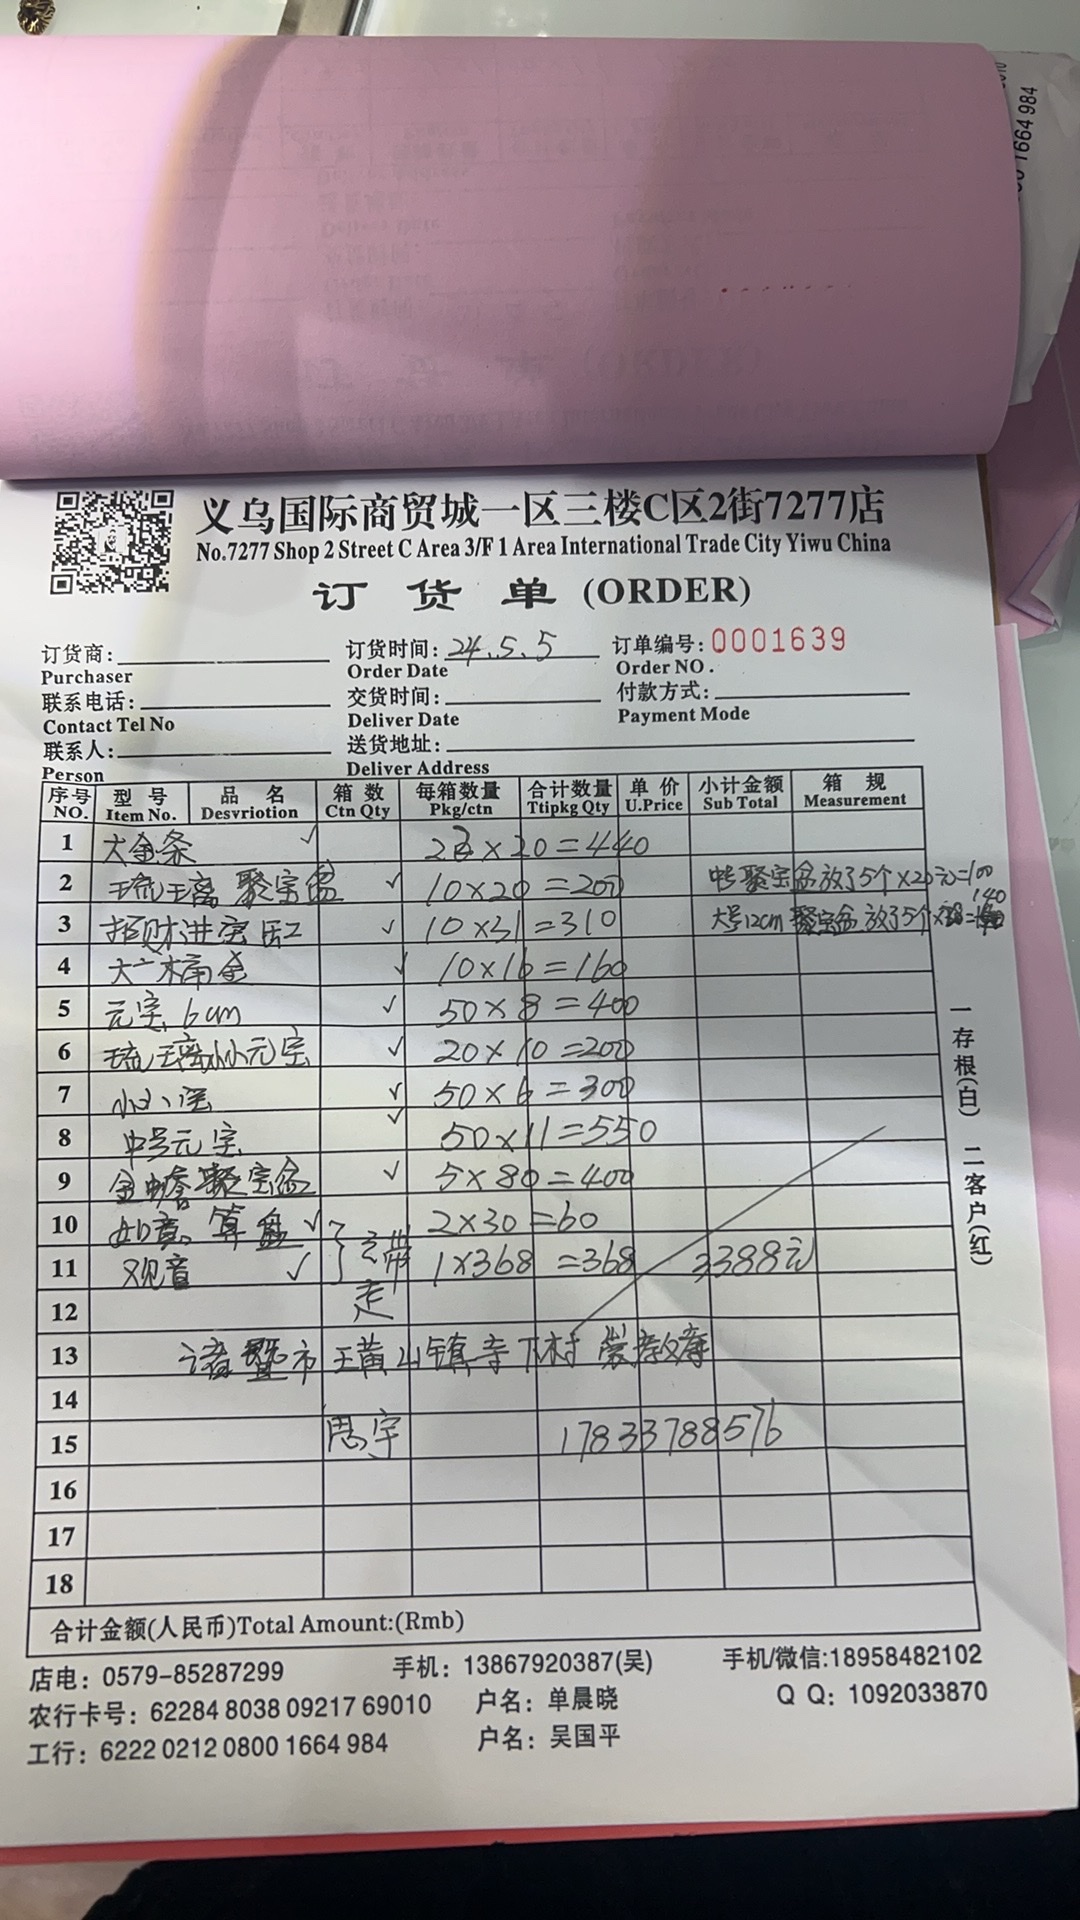 1664 984
义乌国际商贸城一区三楼C区2街7277店
No.7277 Shop 2 Street C Area 3/F 1 Area International Trade City Yiwu China
订 货 单 (ORDER)
订货商: 订货时间: 24.5.5 订单编号: 0001639
Purchaser Order Date Order NO.
联系电话: 交货时间: 付款方式:
Contact Tel No Deliver Date Payment Mode
联系人: 送货地址:
Person Deliver Address
序号 型 号 品 名 箱 数 每箱数量 合计数量 单 价 小计金额 箱 规
NO. Item No. Desvriotion Ctn Qty Pkg/ctn Ttipkg Qty U.Price Sub Total Measurement
1 大金条 ✓ 22×20=440
2 琉璃聚宝盆 ✓ 10×20=200 中号聚宝盆放了5个×20元=100
3 招财进宝缸 ✓ 10×31=310 大号12cm聚宝盆放了5个× = 140
4 大 桶金 ✓ 10×16=160
5 元宝 6cm ✓ 50×8=400
6 琉璃小小元宝 ✓ 20×10=200
7 小 ✓ 50×6=300
8 中号元宝 ✓ 50×11=550
9 金蟾聚宝盆 ✓ 5×80=400
10 如意。算盘 ✓ 2×30=60
11 观音 ✓ 1×368=368 3388元
12 带走
13 诸暨市 璜山镇寺下村 崇教寺
14
15 周宇 17833788576
16
17
18
合计金额(人民币)Total Amount:(Rmb)
一存根(白) 二客户(红)
店电: 0579-85287299 手机: 13867920387(吴) 手机/微信:18958484102
农行卡号: 62284 8038 09217 69010 户名: 单晨晓 Q Q: 1092033870
工行: 6222 0212 0800 1664 984 户名: 吴国平